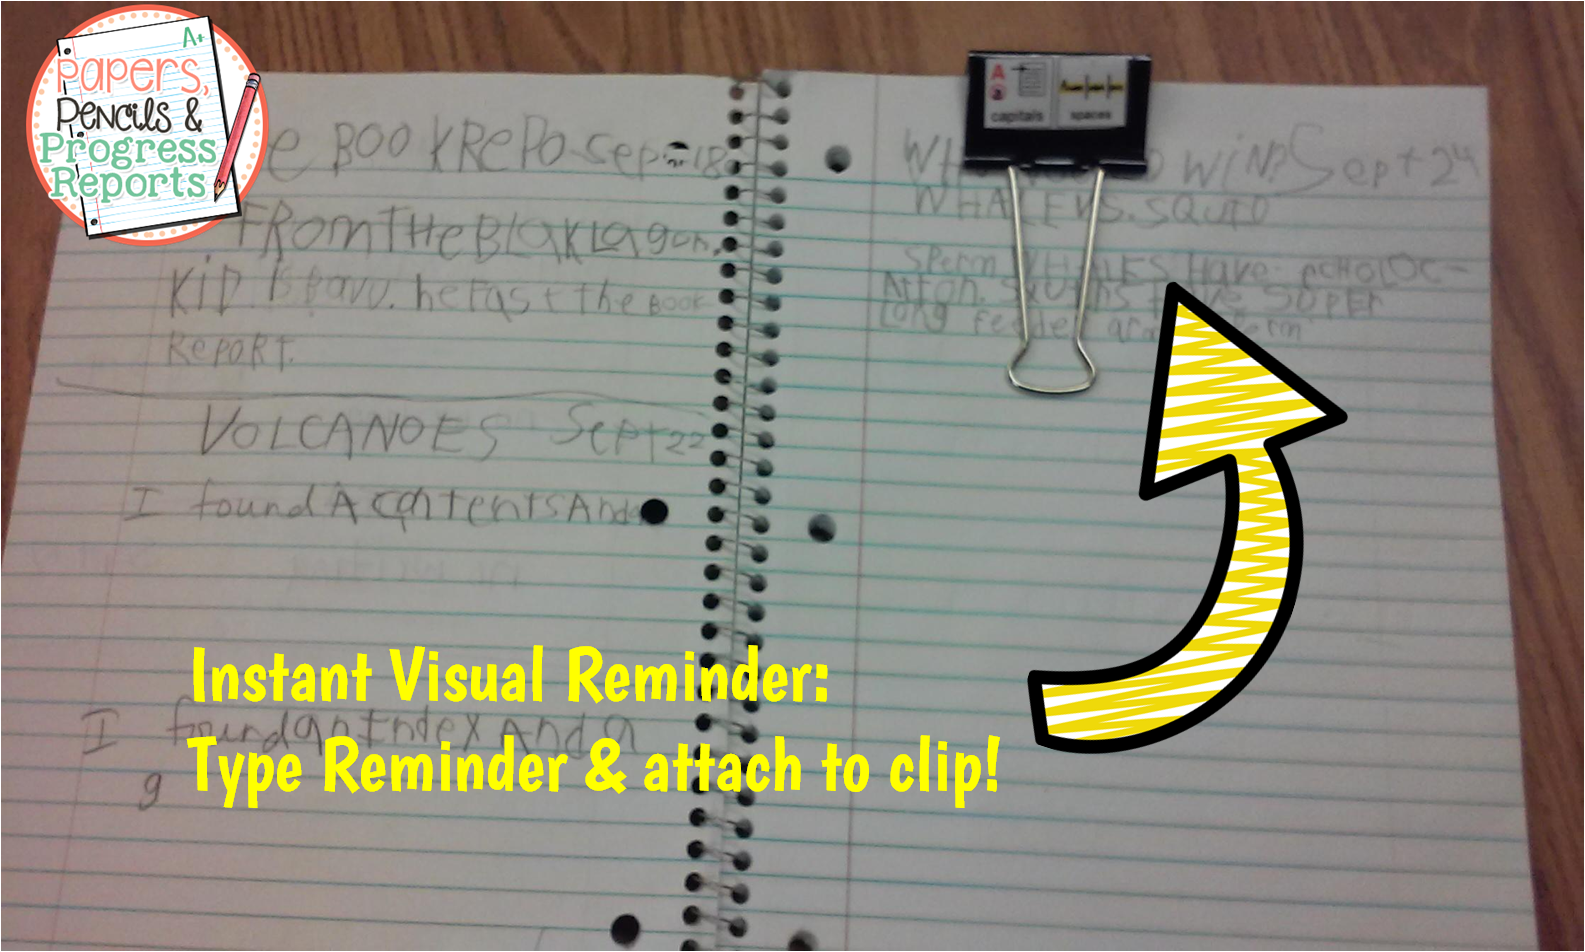 A+
Papers,
Pencils &
Progress
Reports
e BOOKRePO Sept 18
FROMTHeBLaKLagon.
KiD is
he
the BOOK
RePORT.
VOLCANOES Sept 22
I found A contentsAnd
I foundanIndex And a
g
A
a
capitals
spaces
WH O WiN? Sept 24
WHALE VS. SQUID
SPerm WHALES Have eCHOLOC-
AtION. SQUIDS HAVE SUPER
Long feeder
Instant Visual Reminder:
Type Reminder & attach to clip!